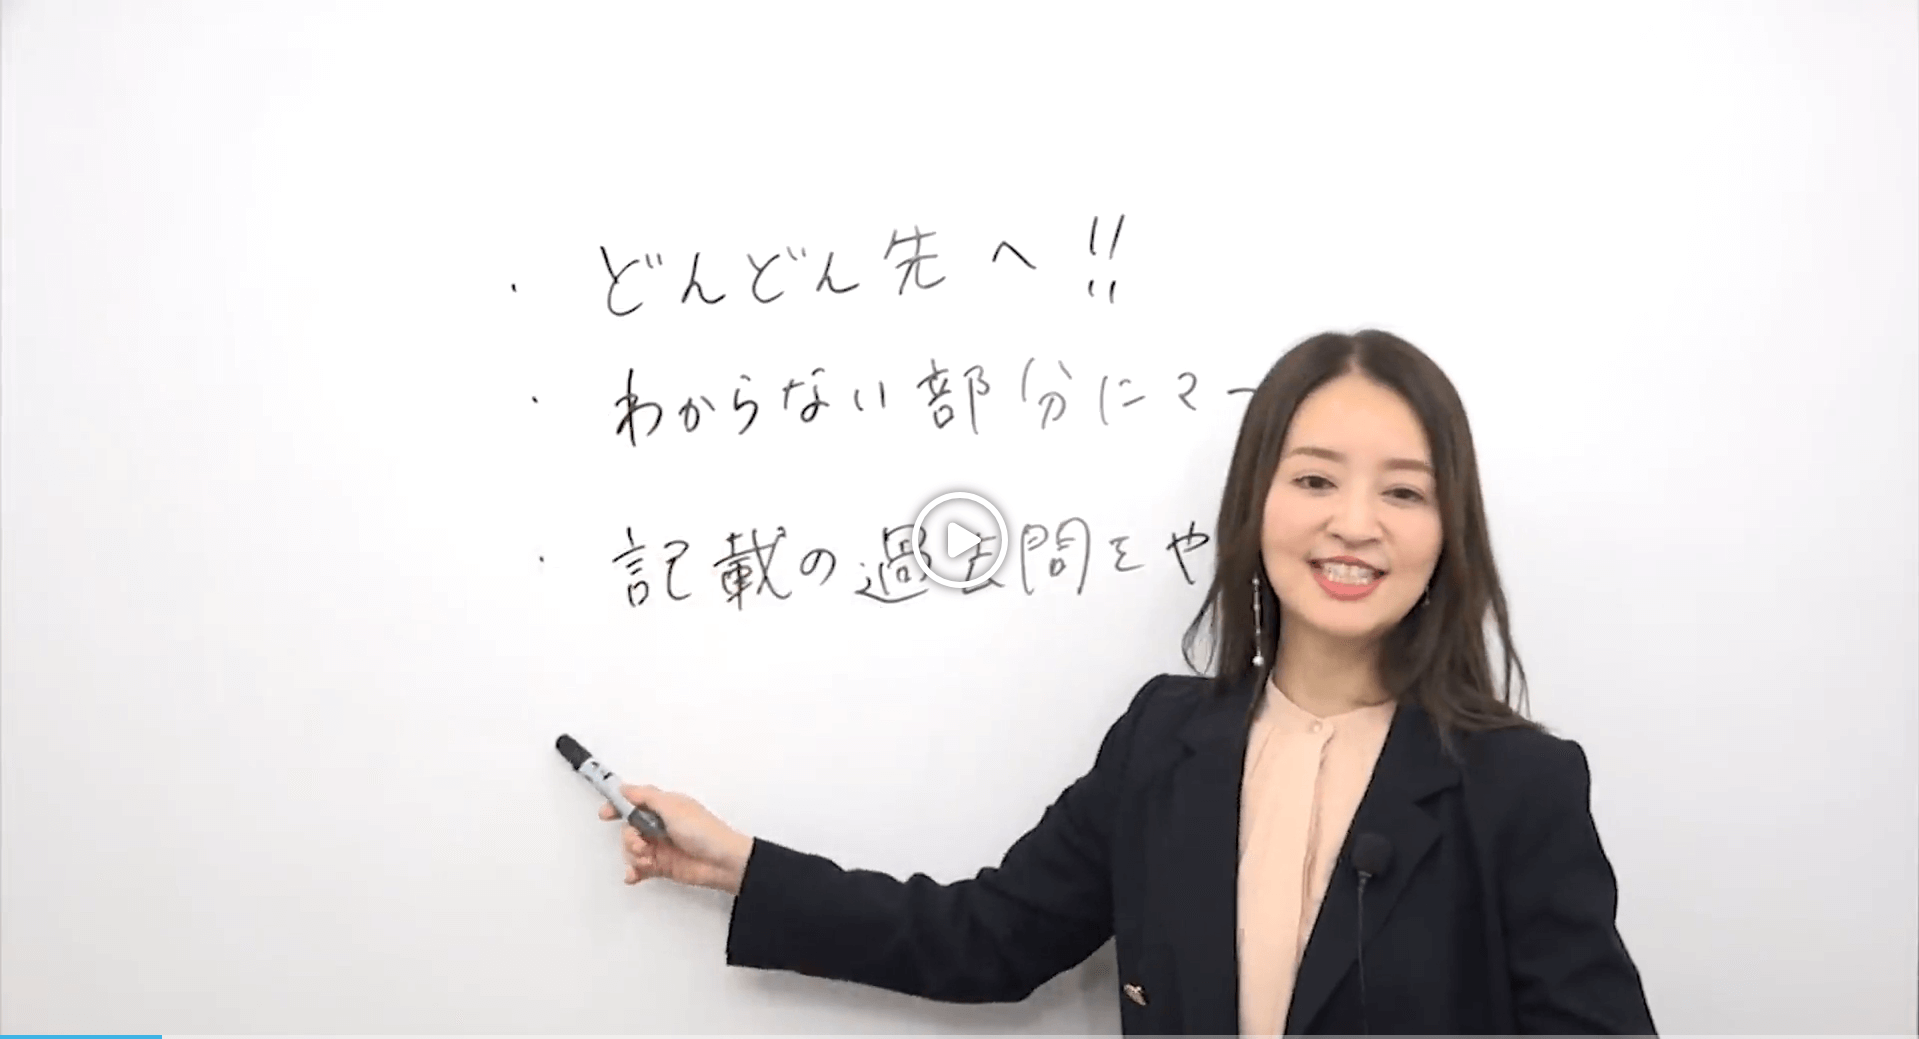 ・どんどん先へ!!
・わからない部分にマー
・記載の過去問をや